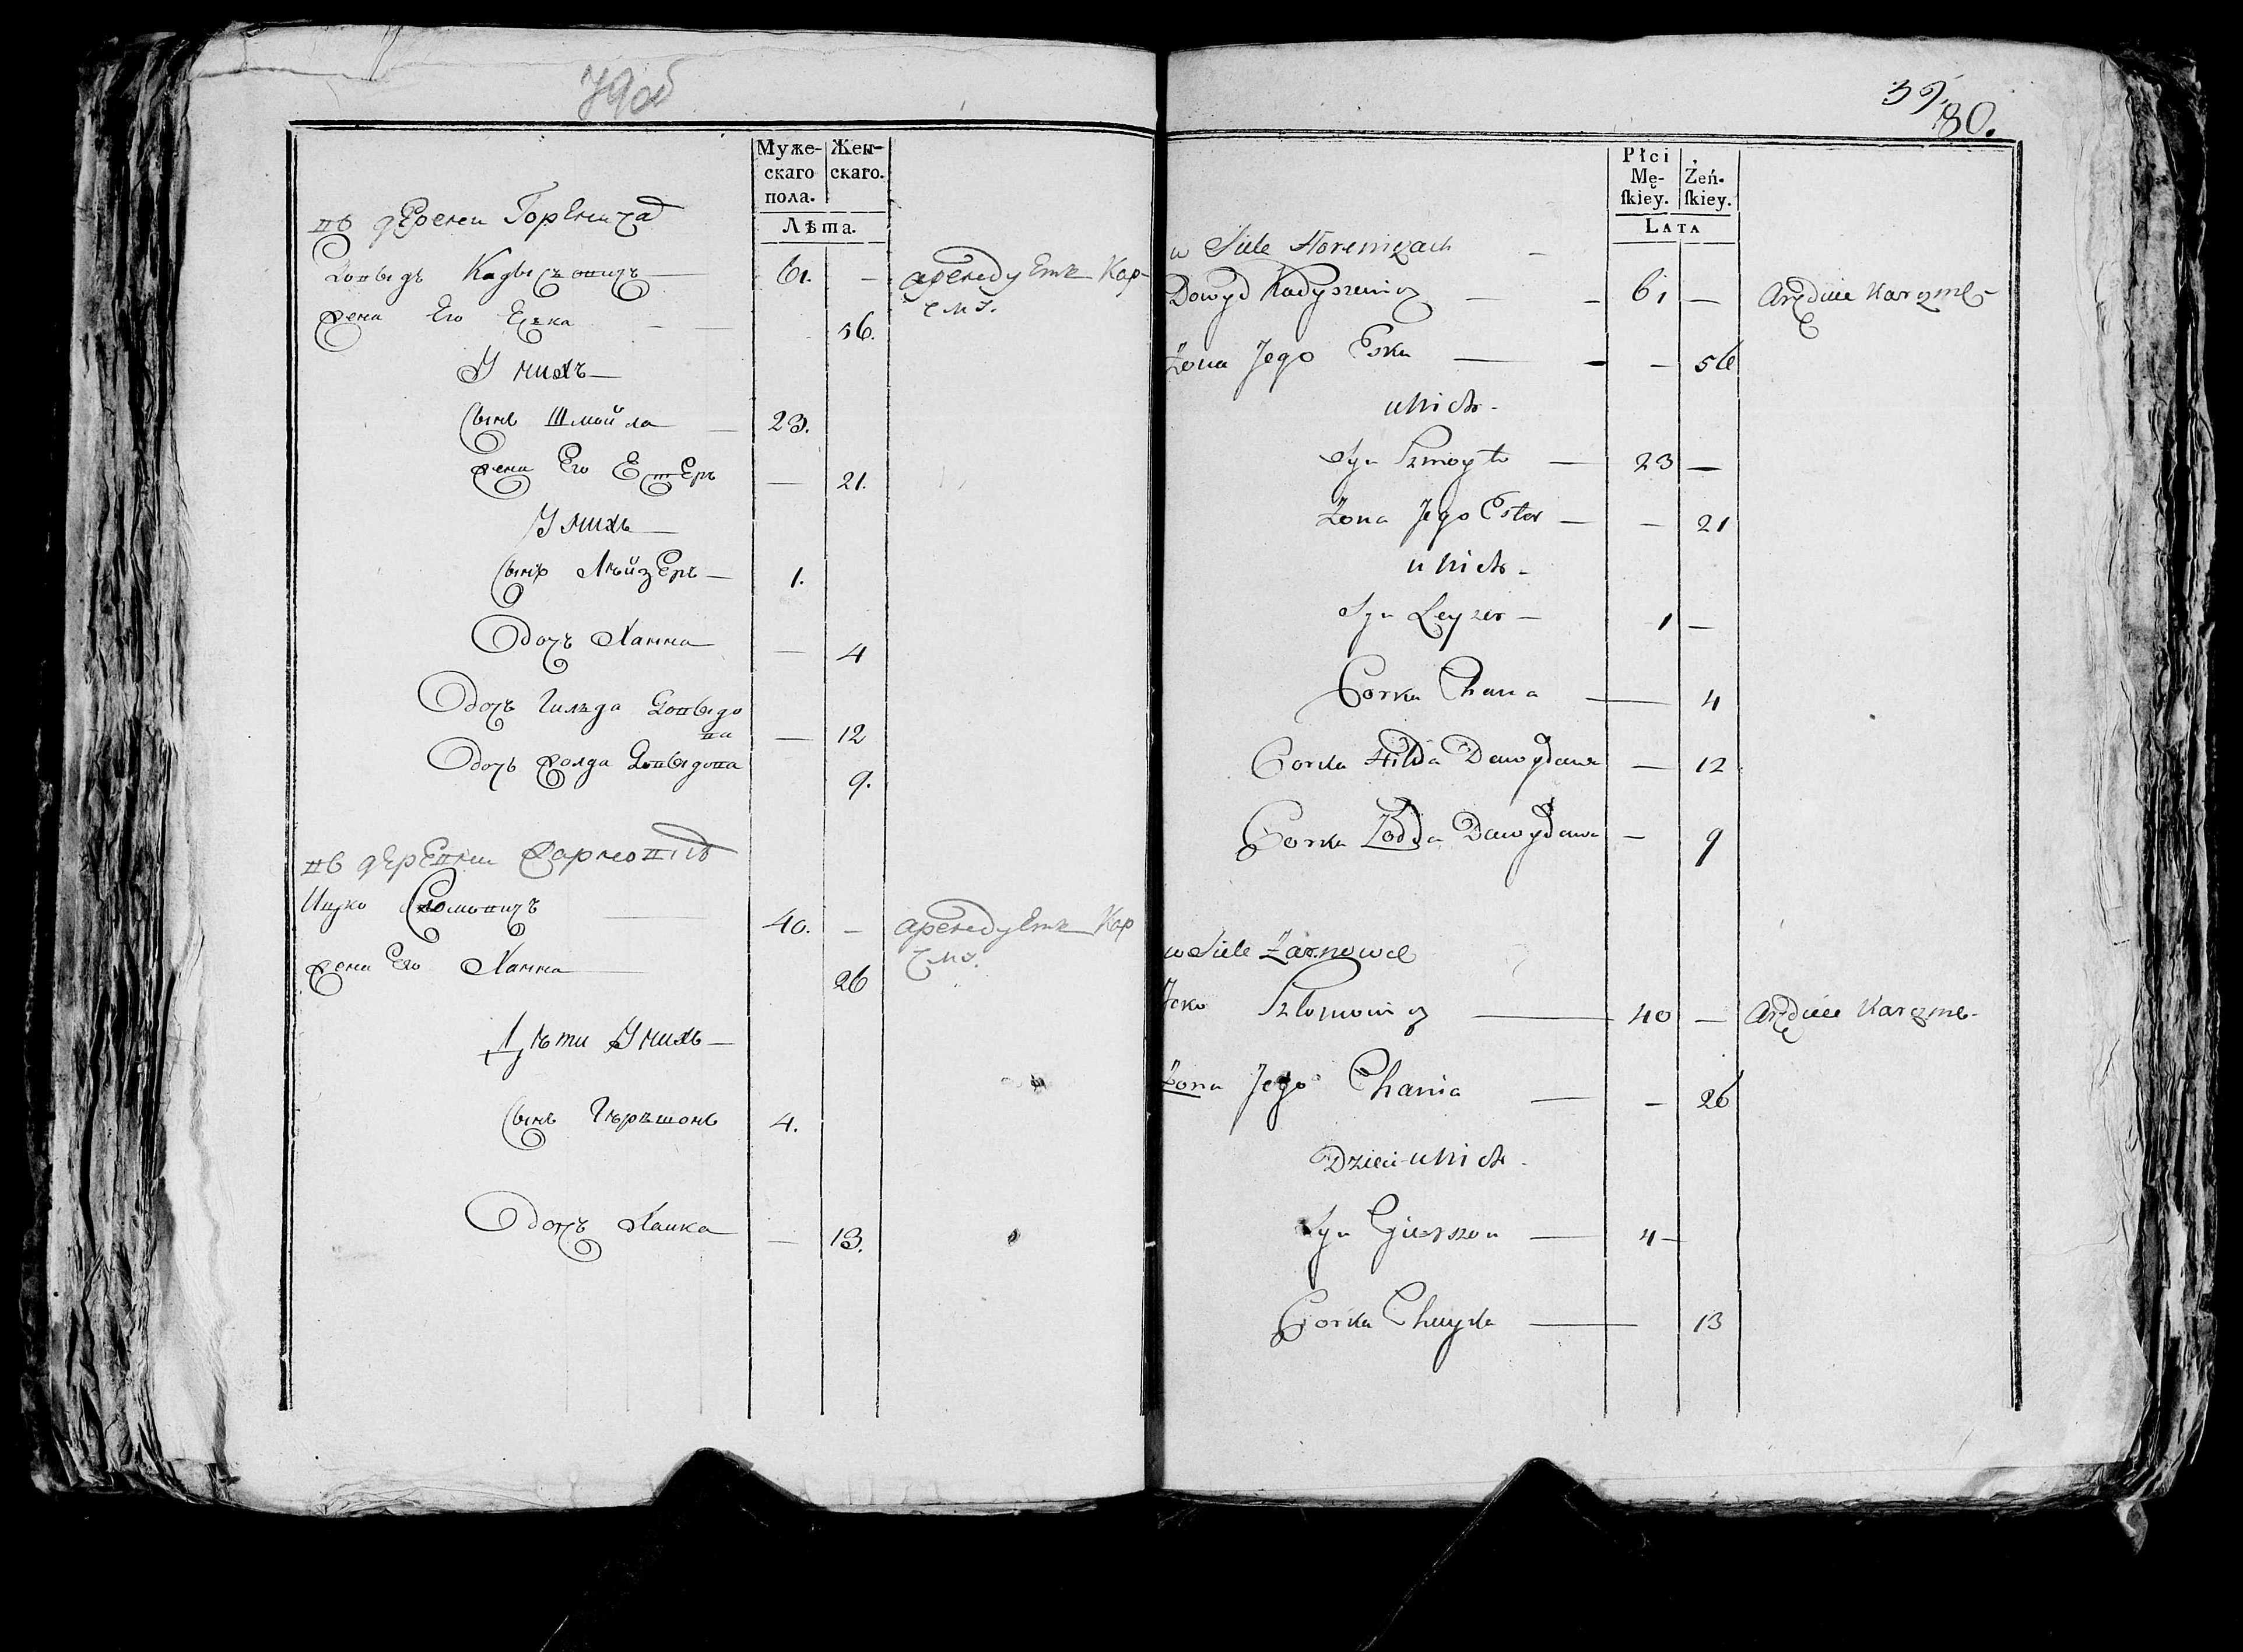 79об
Муже-
скаго
пола.
Жен-
скаго.
Лѣта.
въ деревни Гореничах
Довыдъ Кадышовичъ — 61. — арендуетъ Кор-
чму.
жена Его Еска — — 56.
У нихъ —
сынъ Шмойла — 23.
жена Его Естеръ — 21.
У нихъ —
сынъ Лѣйзеръ — 1.
дочъ Ханна — 4
дочъ Гильда Довыдо
ва — 12
дочъ Золда Довыдова 9.
въ деревни
Ицко Шломовичъ — 40. — арендуетъ Кор
чму.
жена Его Ханна — 26
Дѣти У нихъ —
сынъ Гѣрѣшонъ 4.
дочъ Хаика — 13.
39.
80.
Płci
Mę-
ſkiey.
Żeń-
ſkiey.
LATA
w Siele Horeniczach —
Dowyd Kadyszewicz — — 61 — Aręduie Karczme
Żona Jego Eska — - — 56
u Nich -
Syn Szmoyło — 23 —
Żona Jego Ester — — 21
u Nich -
Syn Leyzer — 1 —
Corka Chana — 4
Corka Hilda Dawydowa — 12
Corka Zodda Dawydowa — 9
w Siele Żarnowce
Icko Szlomowicz — 40 — Aręduie Karczme -
Żona Jego Chania — — 26
Dzieci u Nich -
Syn Gierszon — 4 —
Corka Chayka — 13